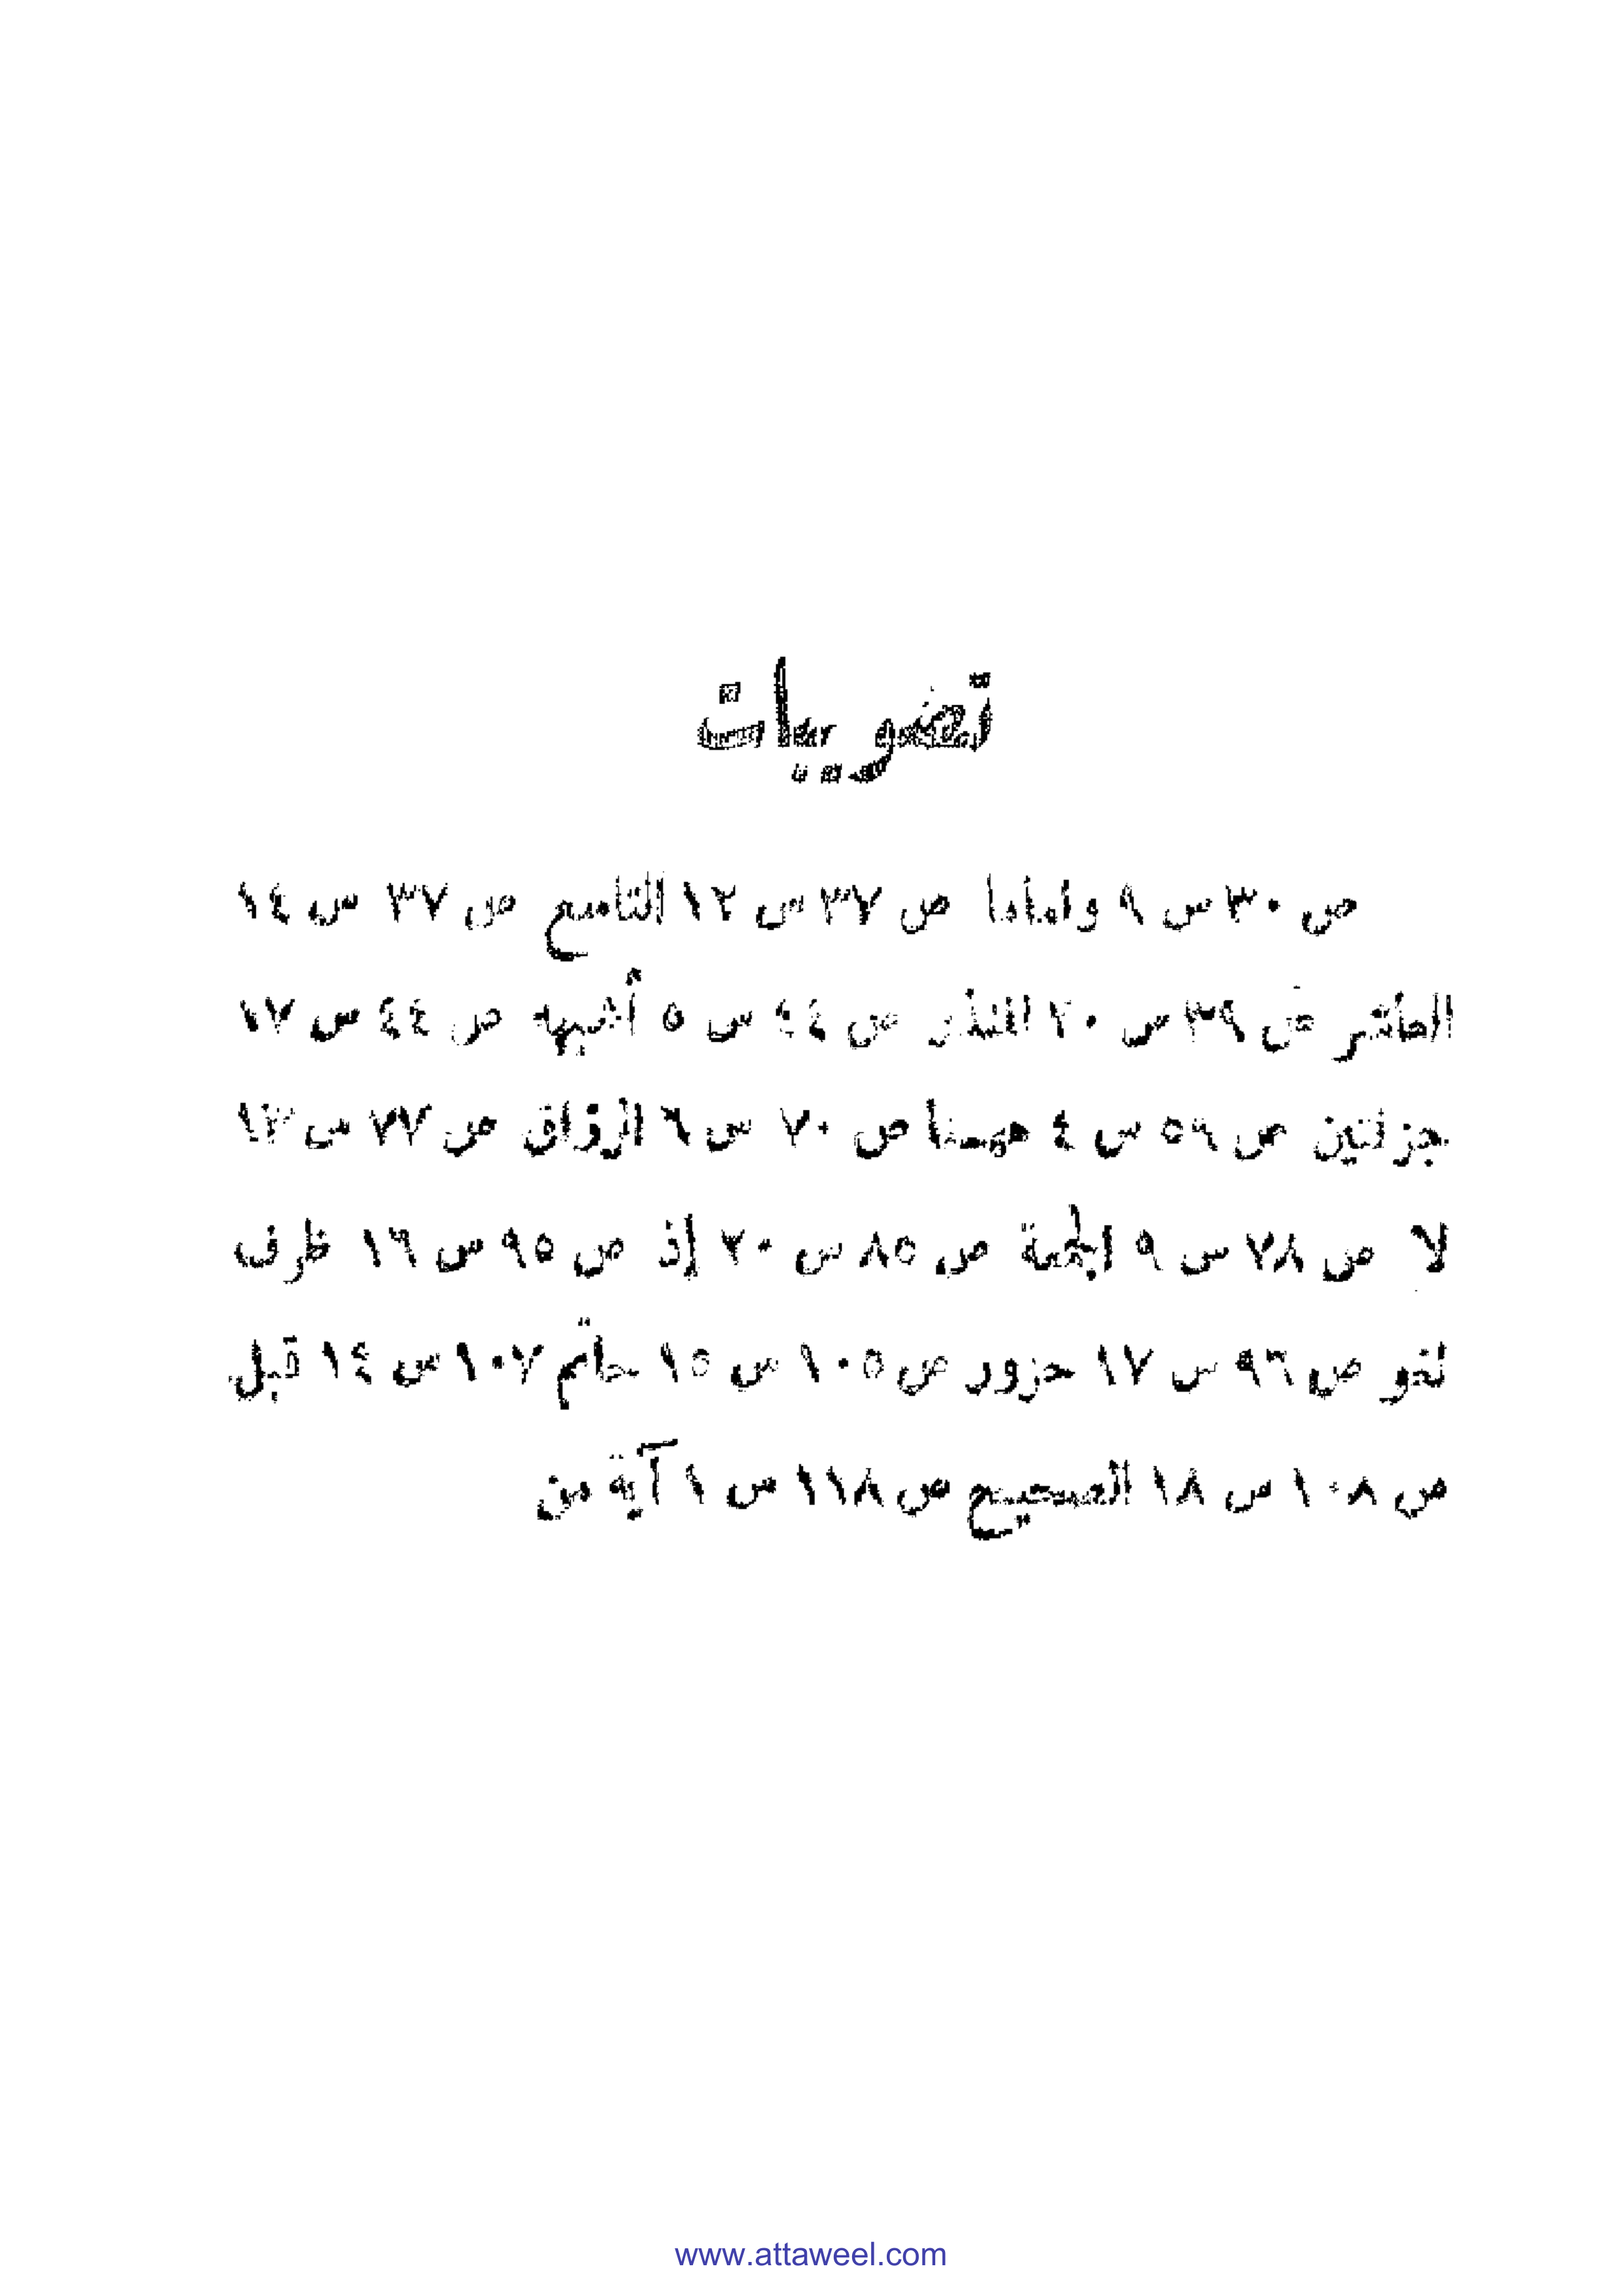 تصويبات
ص ٣٠ س ٩ وإماما ص ٣٧ س ١٢ التاسع ص ٣٧ س ١٤
العاشر ص ٣٩ س ٢٠ المنذر ص ٤٤ س ٥ أشبهه ص ٤٤ س ١٧
جزلتين ص ٥٩ س ٤ ص ٧٠ س ٦ الرزاق ص ٧٧ س ١٣
لا ص ٧٨ س ٩ الجمعة ص ٨٥ س ٢٠ إذ ص ٩٥ س ١٦ ظرف
لغو ص ٩٦ س ١٧ حزور ص ١٠٥ س ١٥ حاتم ١٠٧ س ١٤ قبل
ص ١٠٨ س ١٨ الصحيح ص ١١٨ س ١ آية من
www.attaweel.com